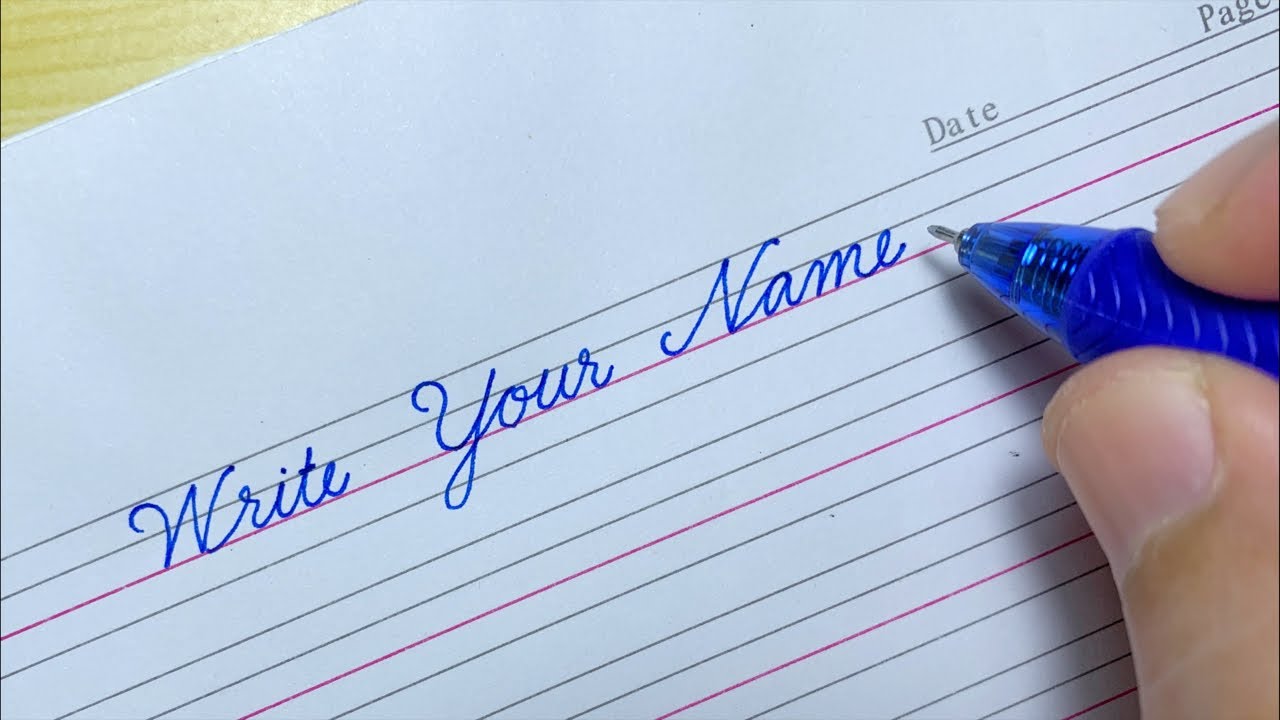 Page
Date
Write Your Name